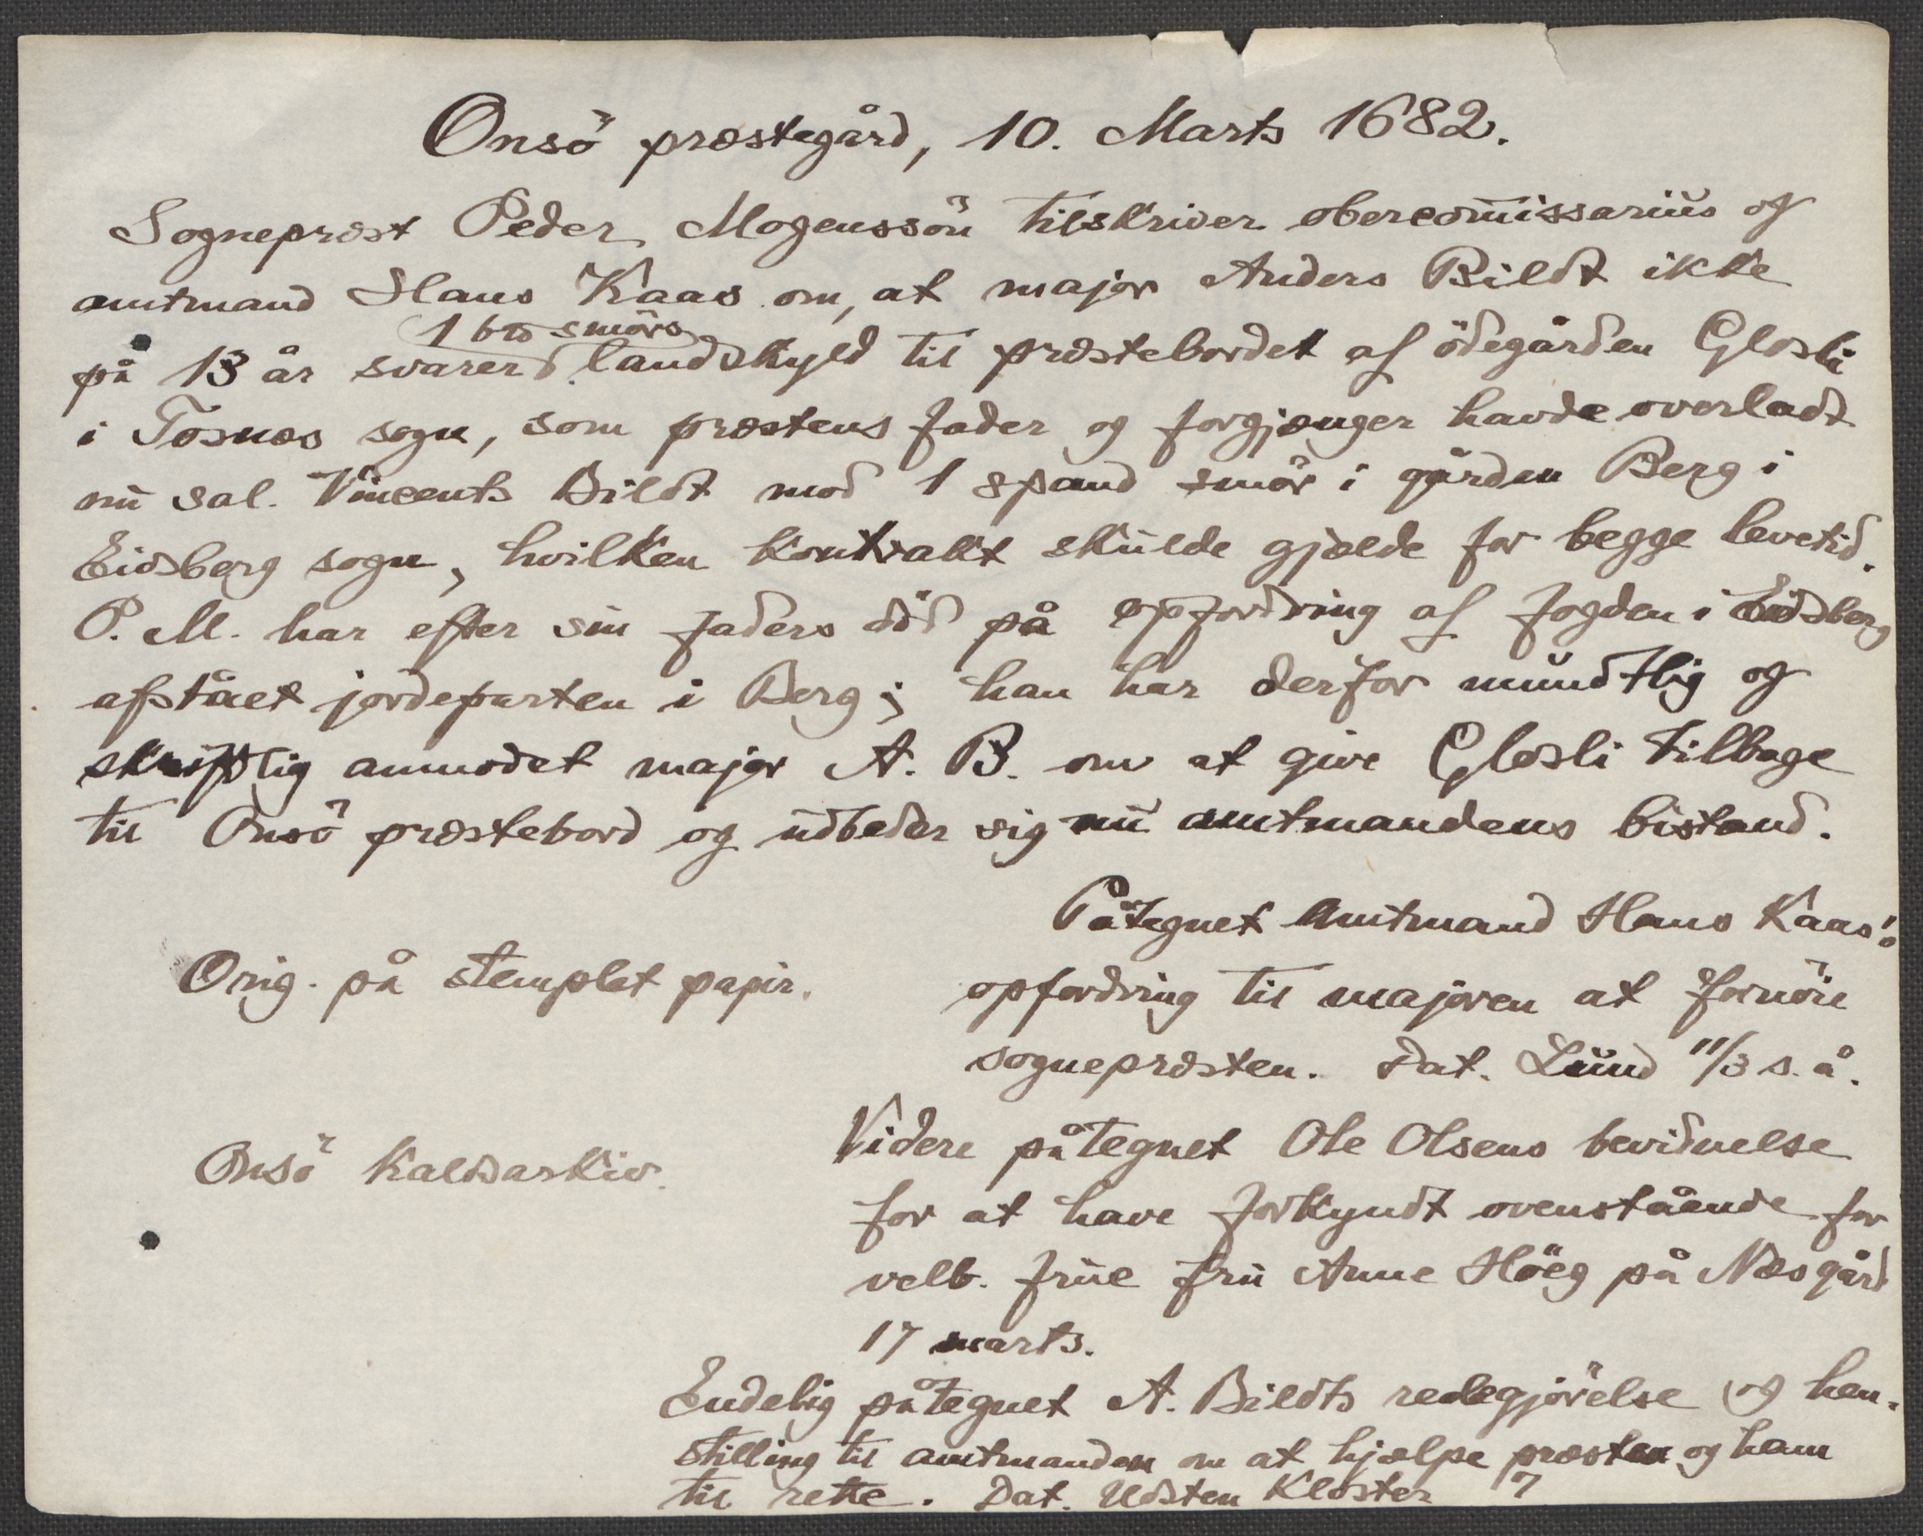 Onsö præstegård, 10. Marts 1682.
Sognepræst Peder Mogenssön tilskriver obercom̄issarius og
amtmand Hans Kaas om, at major Anders Bildt ikke
1 bd smörs
på 13 år svarer landskyld til præstebordet af ödegården Glosli
i Tosnes sogn, som præstens fader og forgjænger havde overladt
nu sal. Vincents Bildt mod 1 spand smör i gården Berg i
Eidsberg sogn, hvilken kontrakt skulde gjælde for begge levetid.
P. M. har efter sin faders död på opfordring af fogden i Eidsberg
afstået jordeparten i Berg; han har derfor mundtlig og
skriftlig anmodet major A. B. om at give Glosli tilbage
til Onsö præstebord og udbeder sig nu amtmandens bistand.
Påtegnet Amtmand Hans Kaas's
Orig. på stemplet papir.
opfordring til majoren at fornöie
sognepræsten. Dat. Lund 11/3 s. å.
Videre påtegnet Ole Olsens bevidnelse
Onsö kaldsarkiv.
for at have forkyndt ovenstående for
velb. frue fru Anne Höeg på Næsgård
17 marts.
Endelig påtegnet A. Bildts redegjörelse og hen-
stilling til amtmanden om at hjælpe præsten og ham
til rette. Dat. Udsten Kloster 7